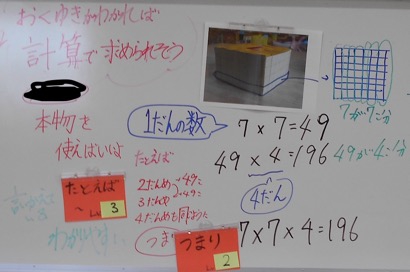 おくゆきがわかれば
計算で求められそう
本物を
使えばいい
1だんの数
7×7=49
7が7こ分
49×4=196
49が4こ分
4だん
たとえば
2だんめ
3だんめ
4だんめも同ように
たとえば
～
3
つまり
2
7×7×4=196